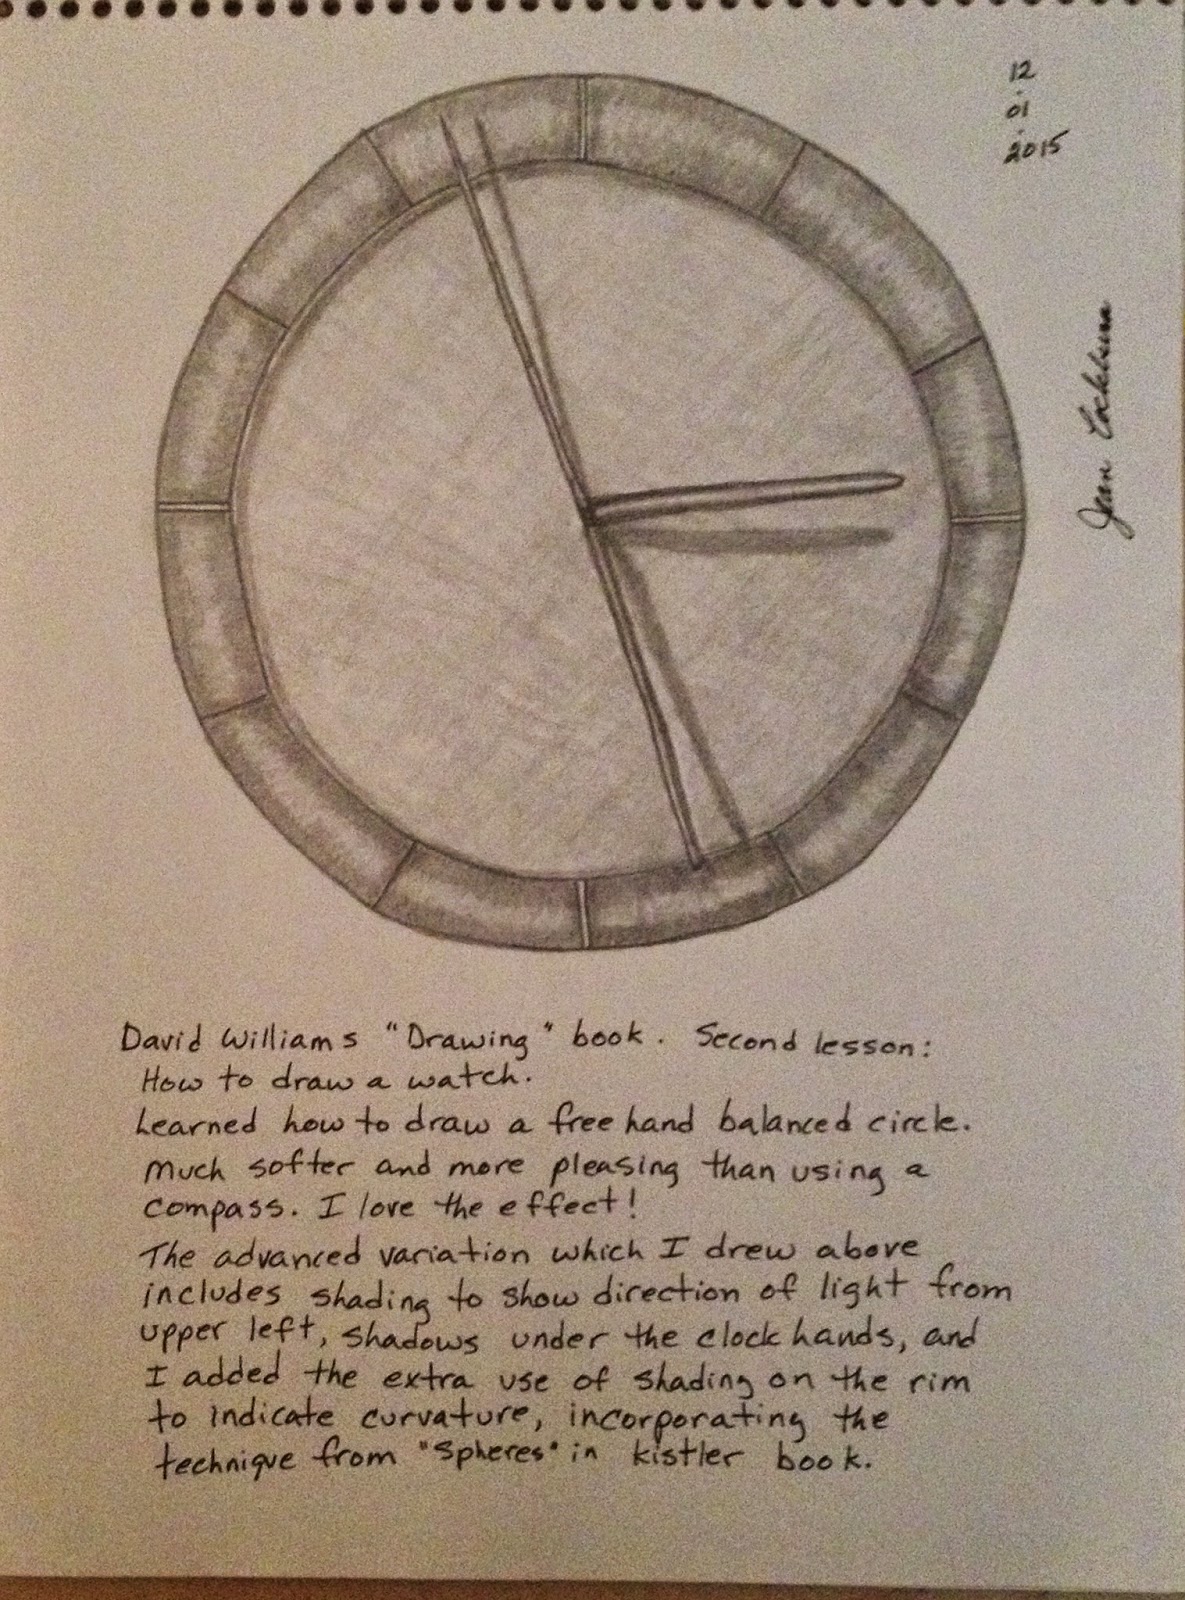 12
.
01
.
2015
Jean Cockburn
David Williams "Drawing" book. Second lesson:
How to draw a watch.
Learned how to draw a free hand balanced circle.
Much softer and more pleasing than using a
compass. I love the effect!
The advanced variation which I drew above
includes shading to show direction of light from
upper left, shadows under the clock hands, and
I added the extra use of shading on the rim
to indicate curvature, incorporating the
technique from "Spheres" in kistler book.